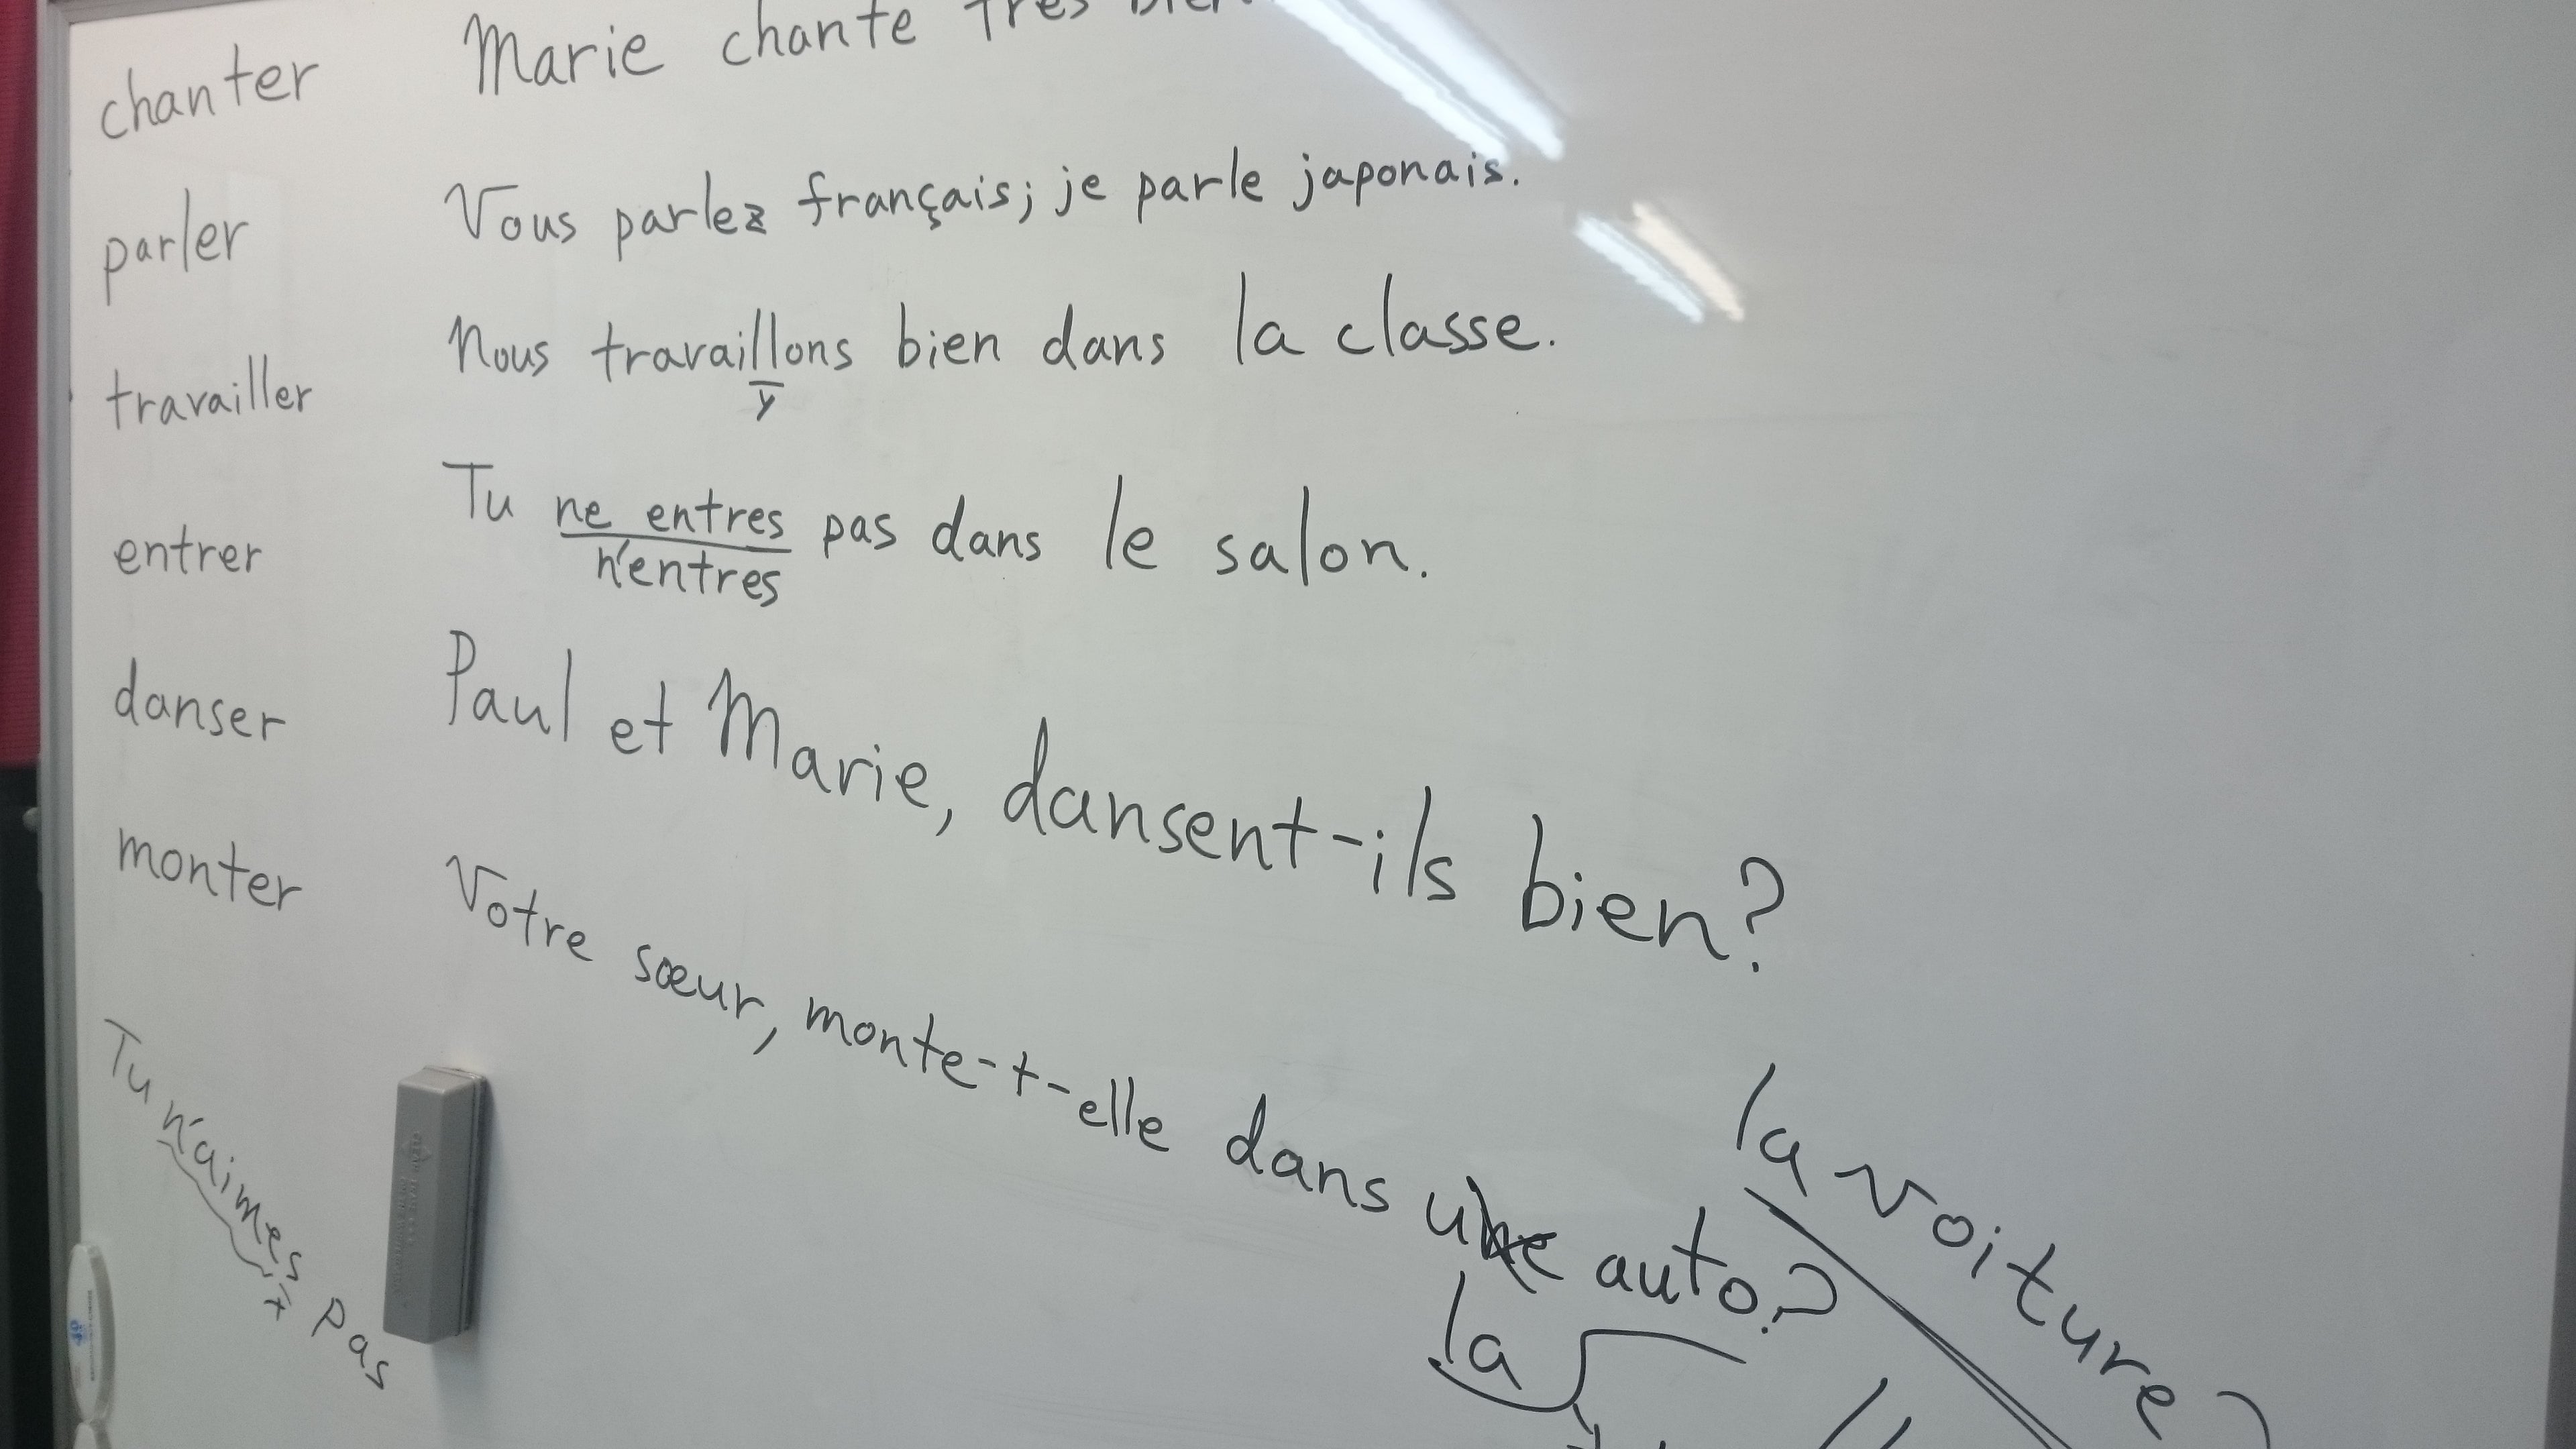 chanter Marie chante très bien
parler Vous parlez français; je parle japonais.
travailler Nous travaillons bien dans la classe.
y
entrer Tu ne entres pas dans le salon.
n'entres
danser Paul et Marie, dansent-ils bien?
monter Votre sœur, monte-t-elle dans une auto?
la voiture?
la
Tu n'aimes pas